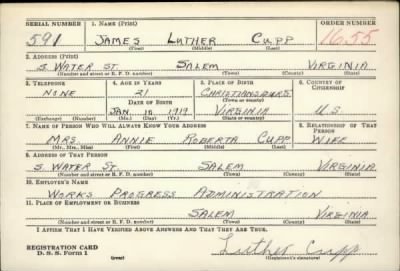 SERIAL NUMBER 1. NAME (Print) ORDER NUMBER
591 JAMES LUTHER CUPP 1655
(First) (Middle) (Last)
2. ADDRESS (Print)
S. WATER ST. SALEM VIRGINIA
(Number and street or R. F. D. number) (Town) (County) (State)
3. TELEPHONE 4. AGE IN YEARS 5. PLACE OF BIRTH 6. COUNTRY OF CITIZENSHIP
NONE 21 CHRISTIANSBURG
DATE OF BIRTH (Town or county)
JAN. 1919 VIRGINIA U.S.
(Exchange) (Number) (Mo.) (Day) (Yr.) (State or country)
7. NAME OF PERSON WHO WILL ALWAYS KNOW YOUR ADDRESS 8. RELATIONSHIP OF THAT PERSON
MRS. ANNIE ROBERTA CUPP WIFE
(Mr., Mrs., Miss) (First) (Middle) (Last)
9. ADDRESS OF THAT PERSON
S. WATER ST. SALEM VIRGINIA
(Number and street or R. F. D. number) (Town) (County) (State)
10. EMPLOYER'S NAME
WORKS PROGRESS ADMINISTRATION
11. PLACE OF EMPLOYMENT OR BUSINESS
SALEM VIRGINIA
(Number and street or R. F. D. number) (Town) (County) (State)
I AFFIRM THAT I HAVE VERIFIED ABOVE ANSWERS AND THAT THEY ARE TRUE.
REGISTRATION CARD Luther Cupp
D. S. S. Form 1 (over) (Registrant's signature)